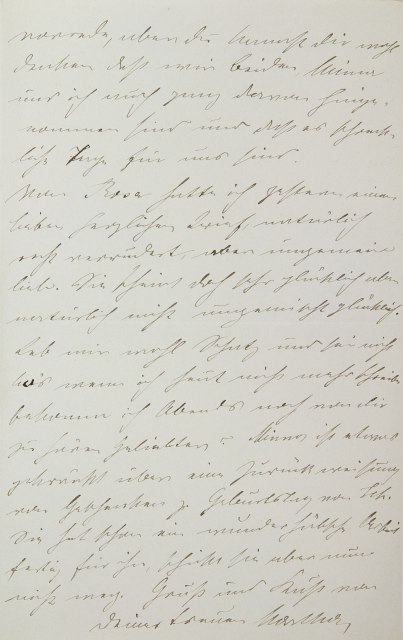 vorrede, aber du kannst dir wohl
denken daß wir beiden, Minna
und ich auch ganz davon hinge-
nommen sind und daß es schreck-
liche Tage für uns sind.
Von Rosa hatte ich gestern einen
lieben herzlichen Brief, natürlich
recht verrudert, aber ungemein
lieb. Sie scheint doch sehr glücklich aber
natürlich nicht ungemischt glücklich.
Leb mir wohl Schatz und sei nicht
bös wenn ich heut nicht mehr schreibe
bekomme ich Abends noch von dir
zu hören Geliebter? Minna ist etwas
gekränkt über eine Zurückweisung
von Geschenken z. Geburtstag von
Sie hat schon ein wunderhübsche
fertig für ihn, schickt sie aber nun
nicht weg. Gruß und Kuß von
deiner treuen Martha,